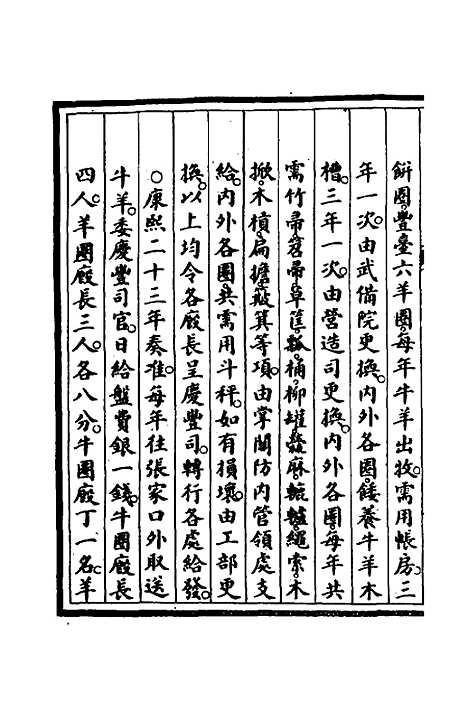 餅圈。豐臺六羊圈。每年牛羊出牧。需用帳房。三
年一次。由武備院更換。內外各圈。餧養牛羊木
槽。三年一次。由營造司更換。內外各圈。每年共
需竹帚。笤帚。草筐。瓢。桶。柳罐。檾麻。轆轤。繩索。木
掀。木槓。扁擔。簸箕等項。由掌關防內管領處支
給。內外各圈。共需用斗秤。如有損壞。由工部更
換。以上均令各廠長呈慶豐司。轉行各處給發。
○康熙二十三年奏准。每年往張家口外取送
牛羊。委慶豐司官。日給盤費銀一錢。牛圈廠長
四人。羊圈廠長三人。各八分。牛圈廠丁一名。羊